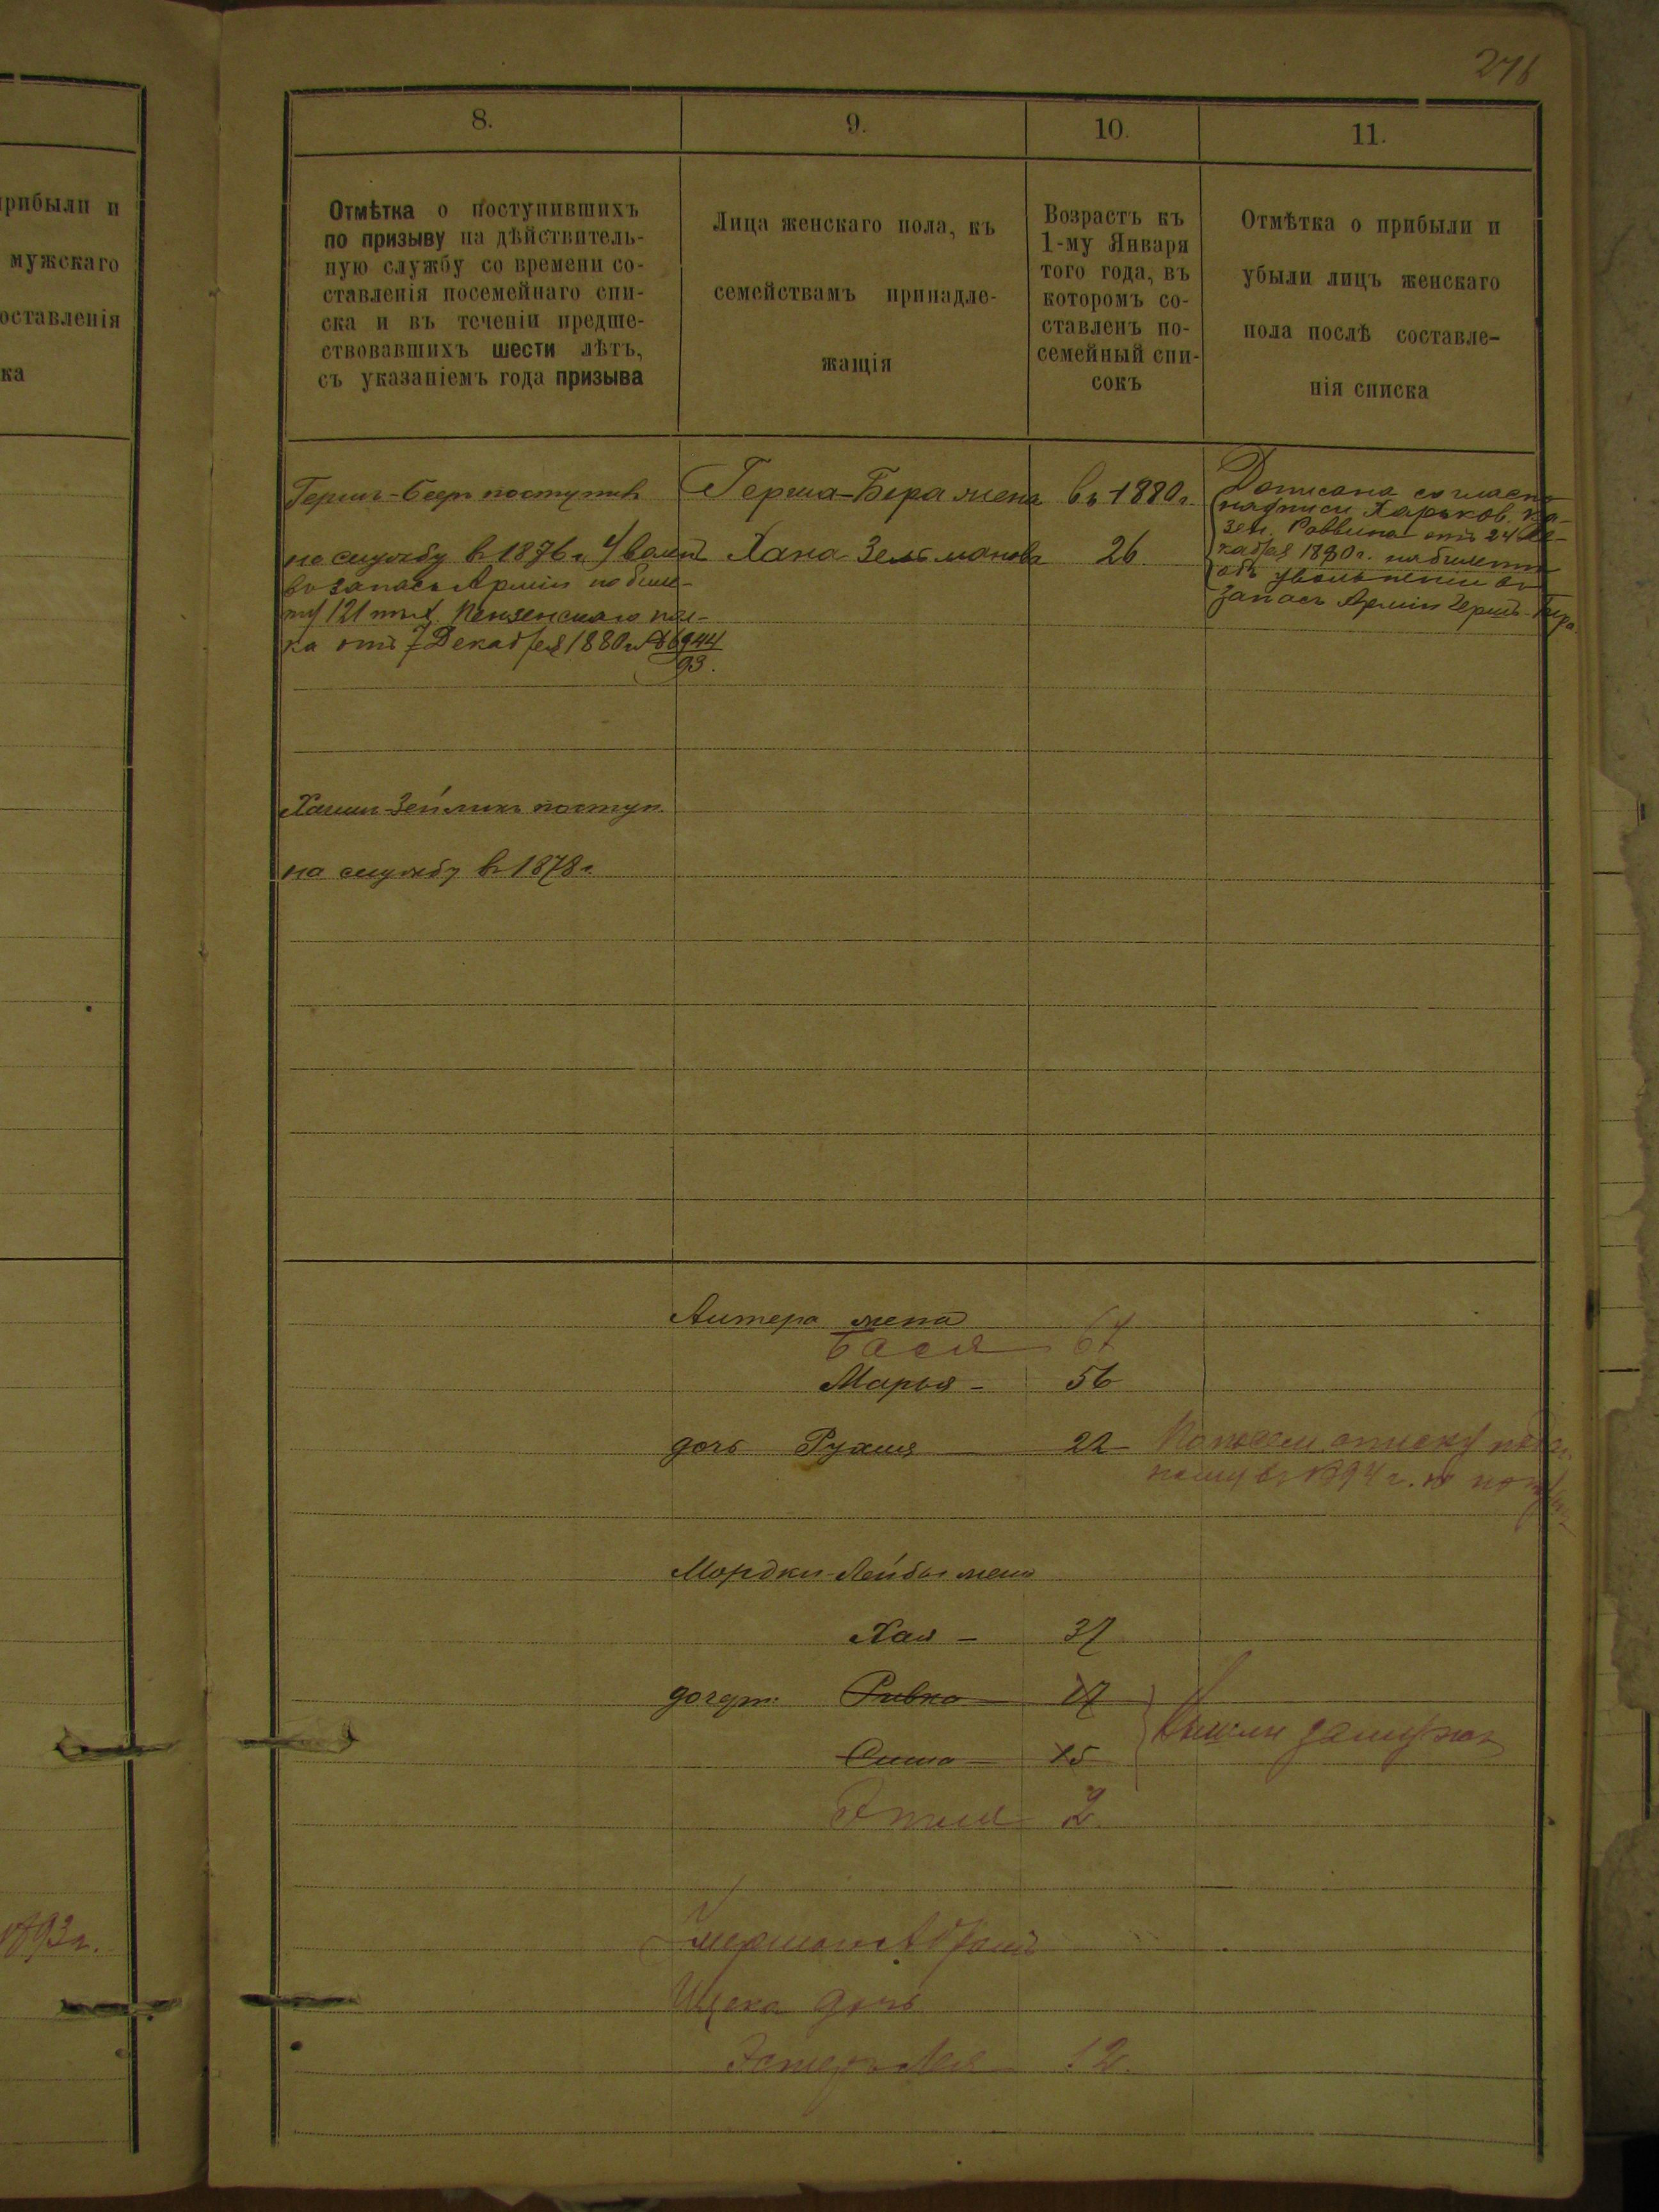 рибыли и
мужскаго
оставленія
ка
1893 г.
276
8.
9.
10.
11.
Отмѣтка о поступившихъ
по призыву на дѣйствитель-
ную службу со времени со-
ставленія посемейнаго спи-
ска и въ теченіи предше-
ствовавшихъ шести лѣтъ,
съ указаніемъ года призыва
Лица женскаго пола, къ
семействамъ принадле-
жащія
Возрастъ къ
1-му Января
того года, въ
которомъ со-
ставленъ по-
семейный спи-
сокъ
Отмѣтка о прибыли и
убыли лицъ женскаго
пола послѣ составле-
нія списка
Гершъ-Беръ поступилъ
на службу въ 1876 г. Уволенъ
въ запасъ Арміи по биле-
ту 121 пѣх. Пензенскаго пол-
ка отъ 7 Декабря 1880 г. № 6944
93.
Герша-Бера жена
Хана Зельманова
въ 1880 г.
26
Дописана согласно
надписи Харьков. ка-
зен. Раввина отъ 24 Де-
кабря 1880 г. на билетѣ
объ увольненіи въ
запасъ Арміи Гершъ-Бера
Хаимъ-Зейликъ поступ.
на службу въ 1878 г.
Антера жена
Бася 67
Марья - 56
дочь Рухля 22
1894 г.
Мордки-Лейбы жена
Хая - 37
дочери: Ривка 17
Сима 15
Вышли замужъ
Этля 2
Ицека дочь
Эстеръ Лея 12.